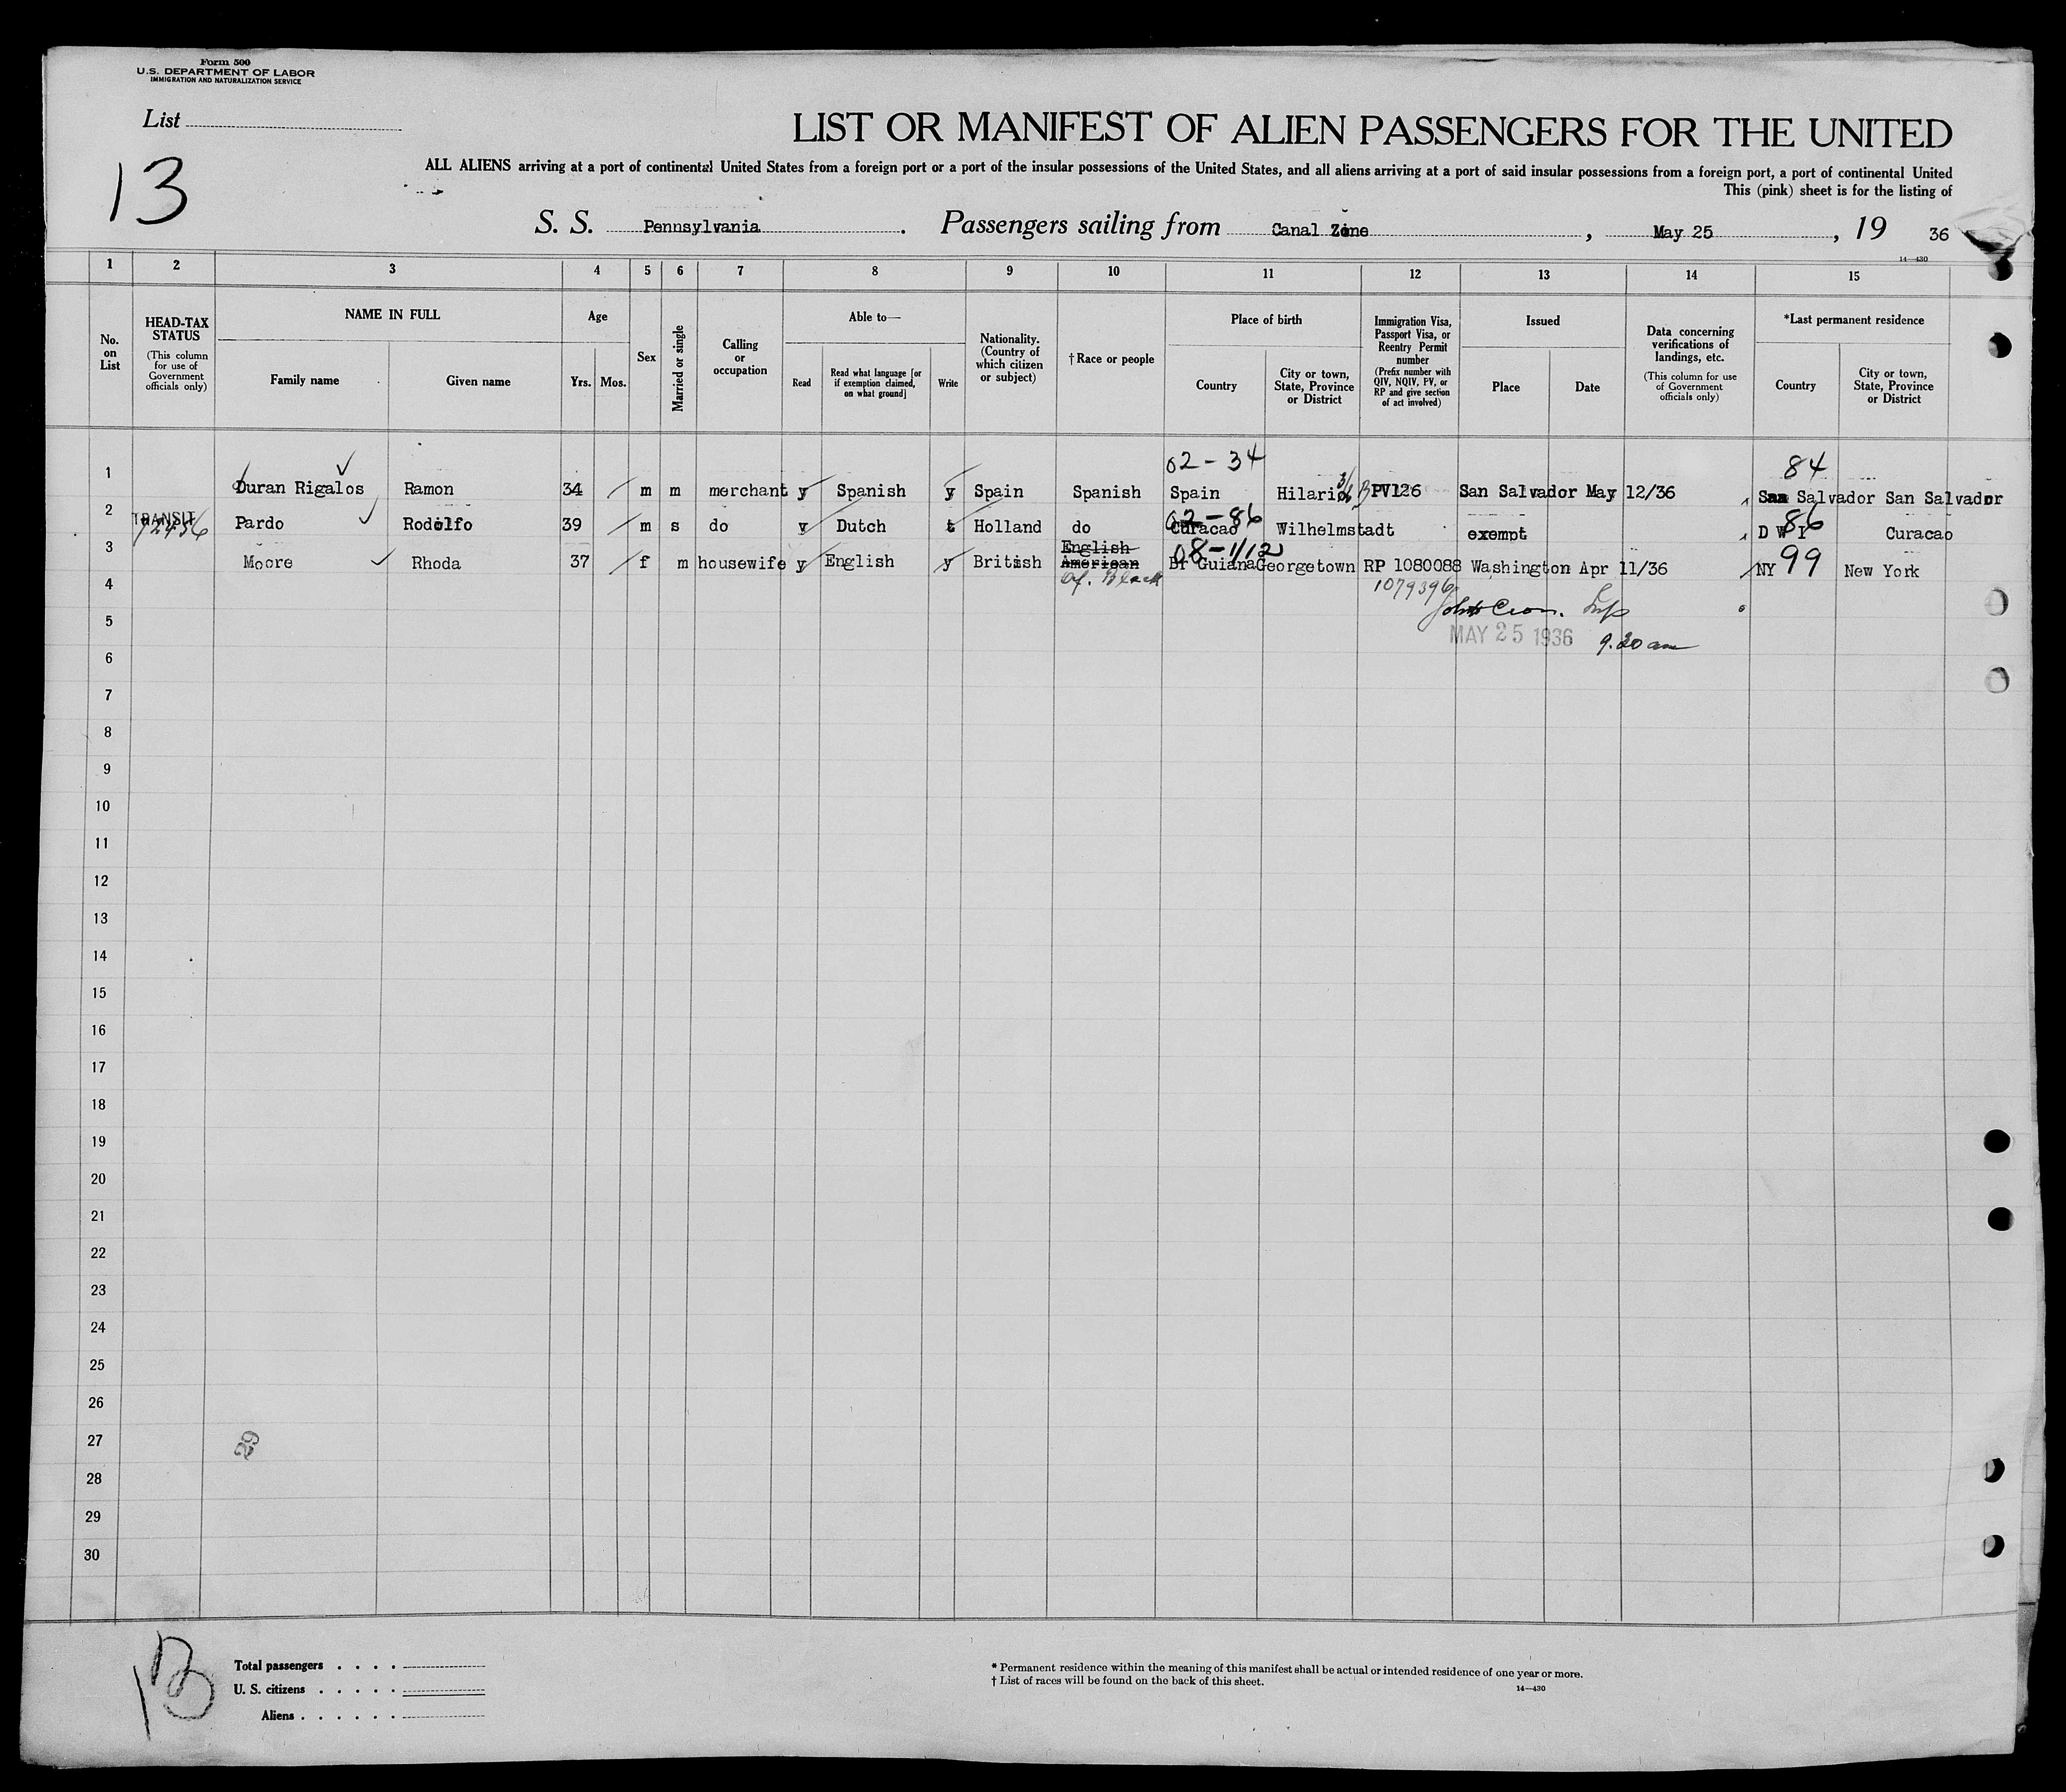 Form 500
U.S. DEPARTMENT OF LABOR
IMMIGRATION AND NATURALIZATION SERVICE
List
13
LIST OR MANIFEST OF ALIEN PASSENGERS FOR THE UNITED
ALL ALIENS arriving at a port of continental United States from a foreign port or a port of the insular possessions of the United States, and all aliens arriving at a port of said insular possessions from a foreign port, a port of continental United
This (pink) sheet is for the listing of
S. S. Pennsylvania. Passengers sailing from Canal Zone, May 25, 19 36
14—430
1 2 3 4 5 6 7 8 9 10 11 12 13 14 15
No. on List
HEAD-TAX STATUS
(This column for use of Government officials only)
NAME IN FULL
Family name
Given name
Age
Yrs. Mos.
Sex
Married or single
Calling or occupation
Able to—
Read
Read what language [or if exemption claimed, on what ground]
Write
Nationality. (Country of which citizen or subject)
†Race or people
Place of birth
Country
City or town, State, Province or District
Immigration Visa, Passport Visa, or Reentry Permit number
(Prefix number with QIV, NQIV, PV, or RP and give section of act involved)
Issued
Place
Date
Data concerning verifications of landings, etc.
(This column for use of Government officials only)
*Last permanent residence
Country
City or town, State, Province or District
02-34 84
1 Duran Rigalos Ramon 34 m m merchant y Spanish y Spain Spanish Spain PV126 San Salvador May 12/36 Salvador San Salvador
02-86 86
2 TRANSIT Pardo Rodolfo 39 m s do y Dutch Holland do Curacao Wilhelmstadt exempt D W I Curacao
English
08-1/12 99
3 Moore Rhoda 37 f m housewife y English y British American Br Guiana Georgetown RP 1080088 Washington Apr 11/36 NY New York
Af. Black
1079396
4
5
MAY 25 1936 9.20 am
6
7
8
9
10
11
12
13
14
15
16
17
18
19
20
21
22
23
24
25
26
27
29
28
29
30
13
Total passengers . . . .
U. S. citizens . . . . .
Aliens . . . . . .
* Permanent residence within the meaning of this manifest shall be actual or intended residence of one year or more.
† List of races will be found on the back of this sheet.
14—430